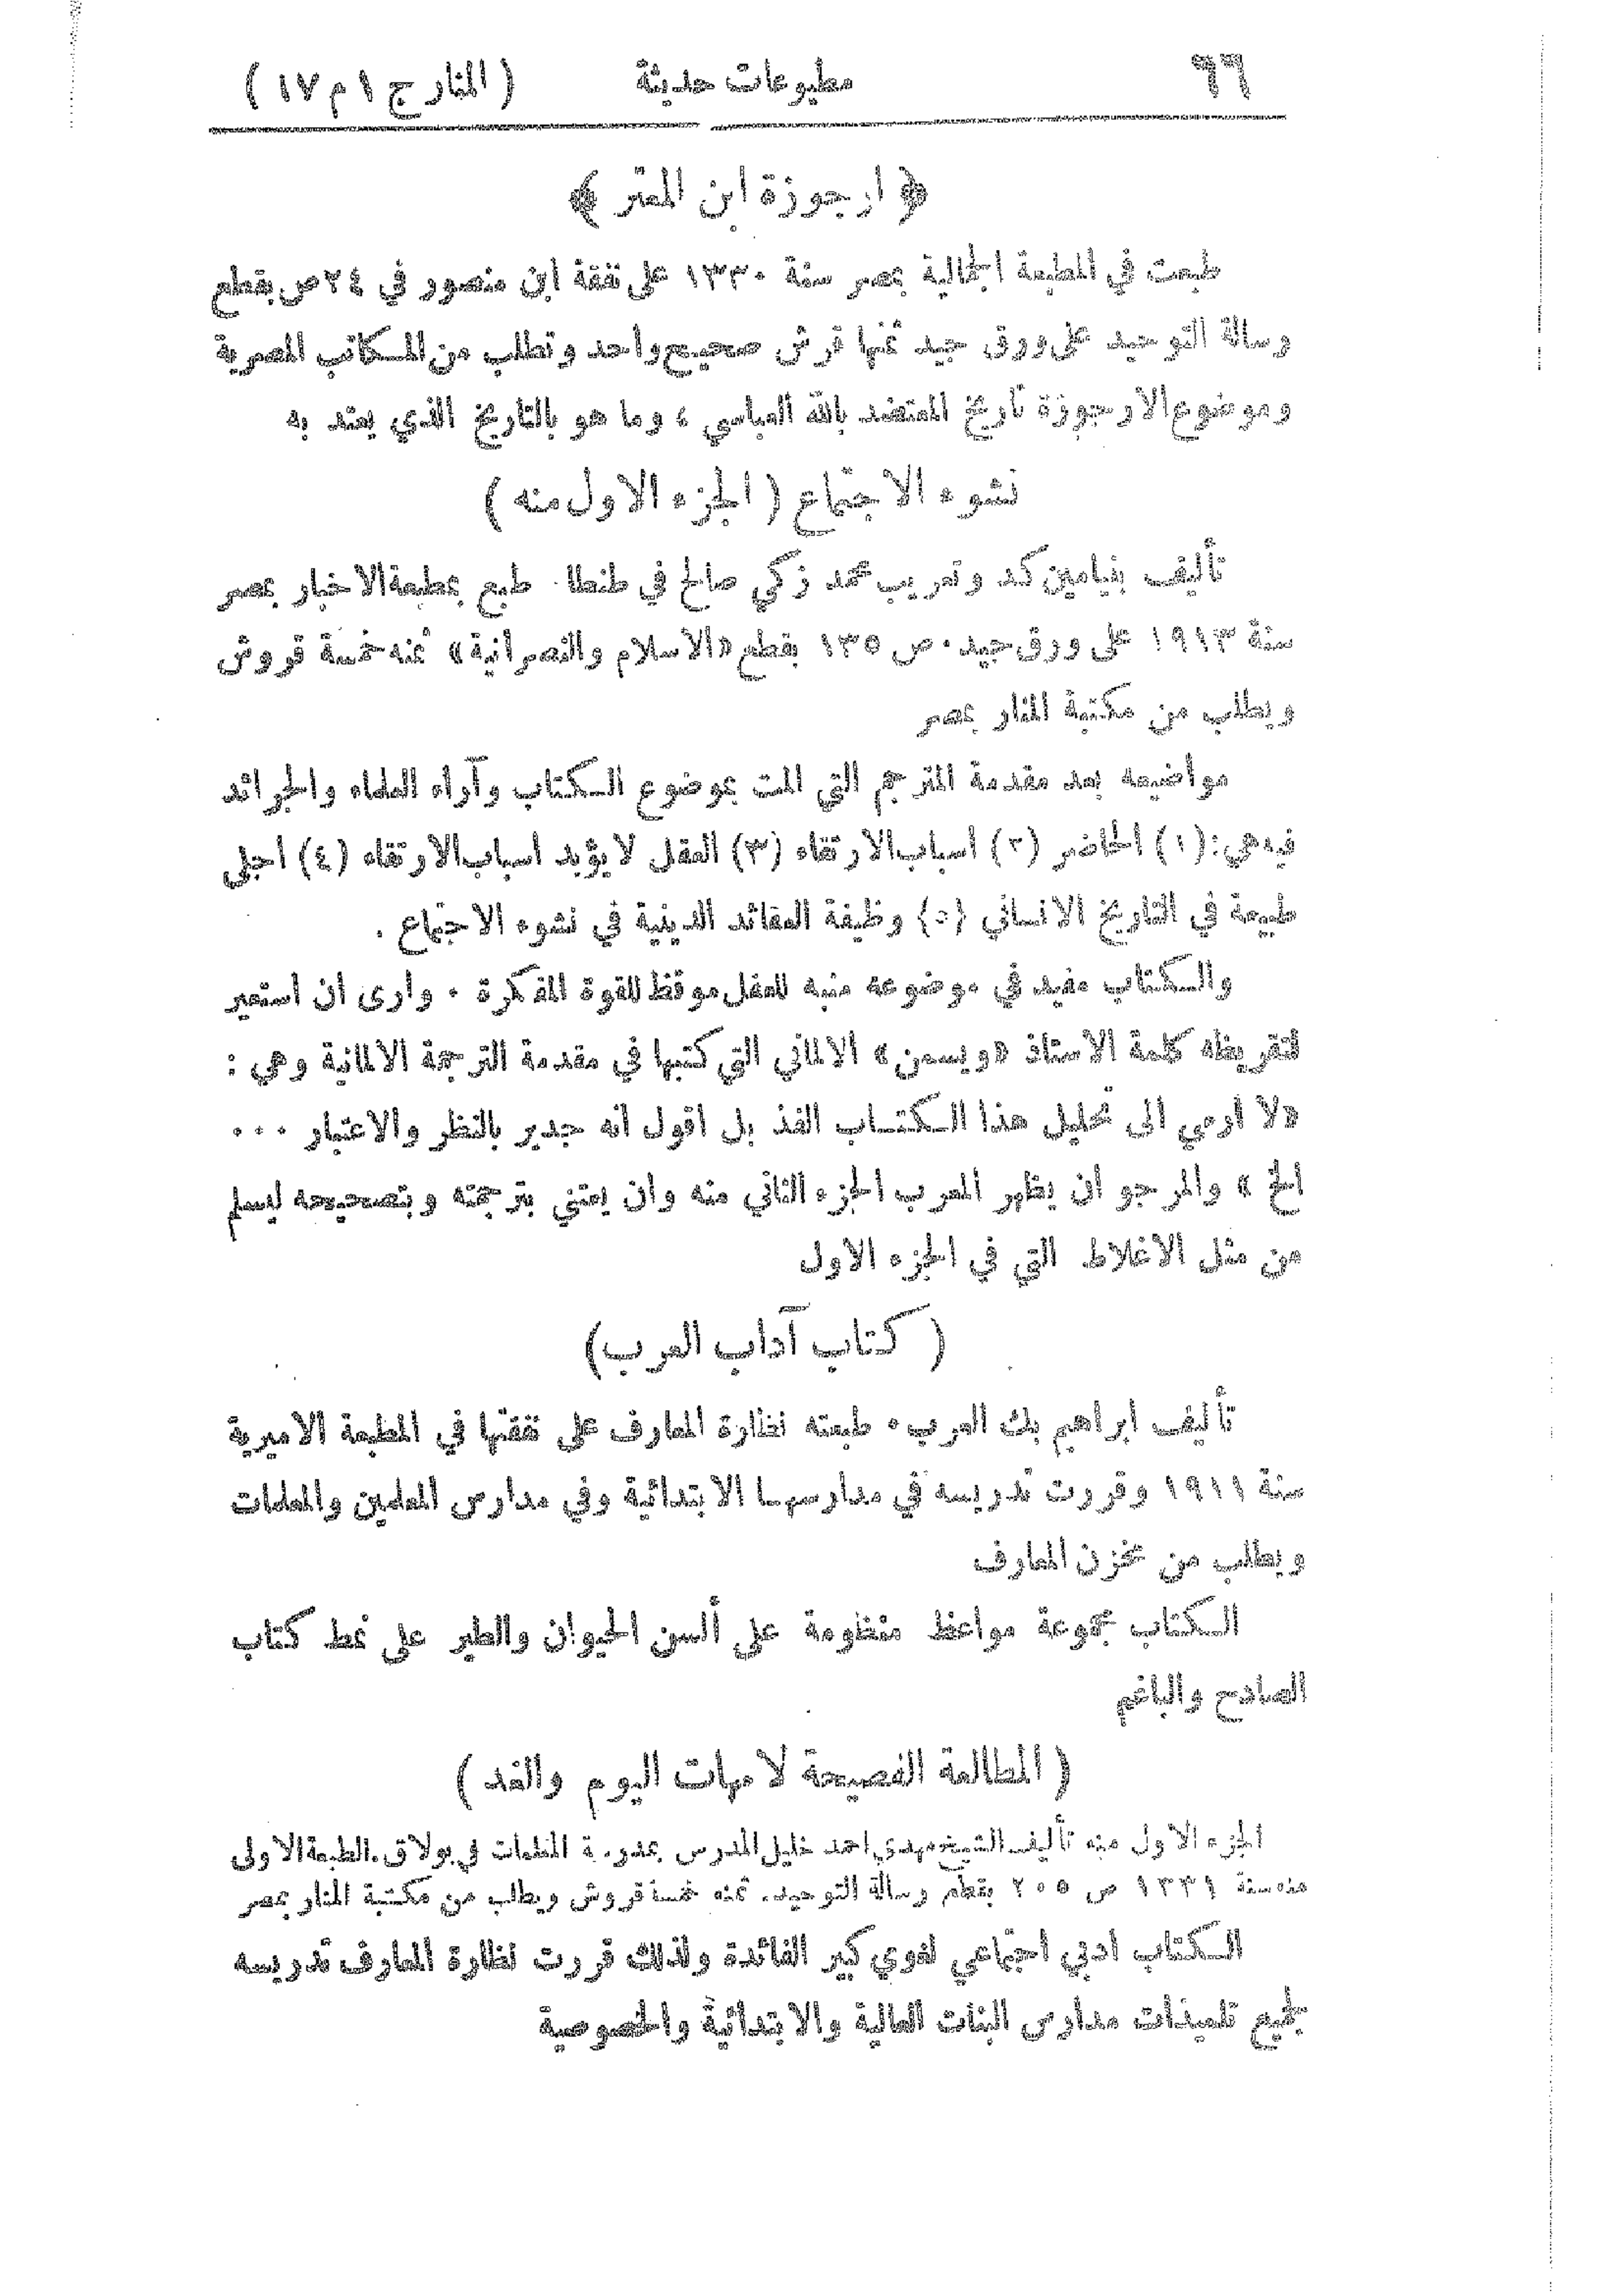 ٦٦ مطبوعات حديثة ( المنار ج ١ م ١٧ )
﴿ ارجوزة ابن المعتز ﴾
طبعت في المطبعة الجمالية بمصر سنة ١٣٣٠ على نفقة ابن منصور في ٢٤ ص بقطع
رسالة التوحيد على ورق جيد ثمنها قرش صحيح واحد وتطلب من المكاتب المصرية
وموضوع الارجوزة تأريخ المعتضد بالله العباسي ، وما هو بالتاريخ الذي يعتد به
نشوء الاجتماع ( الجزء الاول منه )
تأليف بنيامين كد وتعريب محمد زكي صالح في طنطا . طبع بمطبعة الاخبار بمصر
سنة ١٩١٣ على ورق جيد . ص ١٣٥ بقطع «الاسلام والنصرانية» ثمنه خمسة قروش
ويطلب من مكتبة المنار بمصر
مواضيعه بعد مقدمة المترجم التي المت بموضوع الكتاب وآراء العلماء والجرائد
فيه هي : (١) الحاضر (٢) اسباب الارتقاء (٣) العقل لا يؤيد اسباب الارتقاء (٤) اجلى
طبيعة في التاريخ الانساني (٥) وظيفة العقائد الدينية في نشوء الاجتماع .
والكتاب مفيد في موضوعه منبه للعقل موقظ للقوة المفكرة . وارى ان استعير
لتقريظه كلمة الاستاذ «ويسمن» الالماني التي كتبها في مقدمة الترجمة الالمانية وهي :
«لا ارمي الى تحليل هذا الكتاب الفذ بل اقول انه جدير بالنظر والاعتبار ...
الخ » والمرجو ان يظهر المعرب الجزء الثاني منه وان يعتني بترجمته وبتصحيحه ليسلم
من مثل الاغلاط التي في الجزء الاول
( كتاب آداب العرب)
تأليف ابراهيم بك العرب . طبعته نظارة المعارف على نفقتها في المطبعة الاميرية
سنة ١٩١١ وقررت تدريسه في مدارسها الابتدائية وفي مدارس المعلمين والمعلمات
ويطلب من مخزن المعارف
الكتاب مجموعة مواعظ منظومة على ألسن الحيوان والطير على نمط كتاب
الصادح والباغم
( المطالعة الفصيحة لامهات اليوم والغد )
الجزء الاول منه تأليف الشيخ مهدي احمد خليل المدرس بمدرسة المعلمات في بولاق . الطبعة الاولى
منه سنة ١٣٣١ ص ٢٠٥ بقطع رسالة التوحيد . ثمنه خمسة قروش ويطلب من مكتبة المنار بمصر
الكتاب ادبي اجتماعي لغوي كبير الفائدة ولذلك قررت نظارة المعارف تدريسه
لجميع تلميذات مدارس البنات العالية والابتدائية والخصوصية